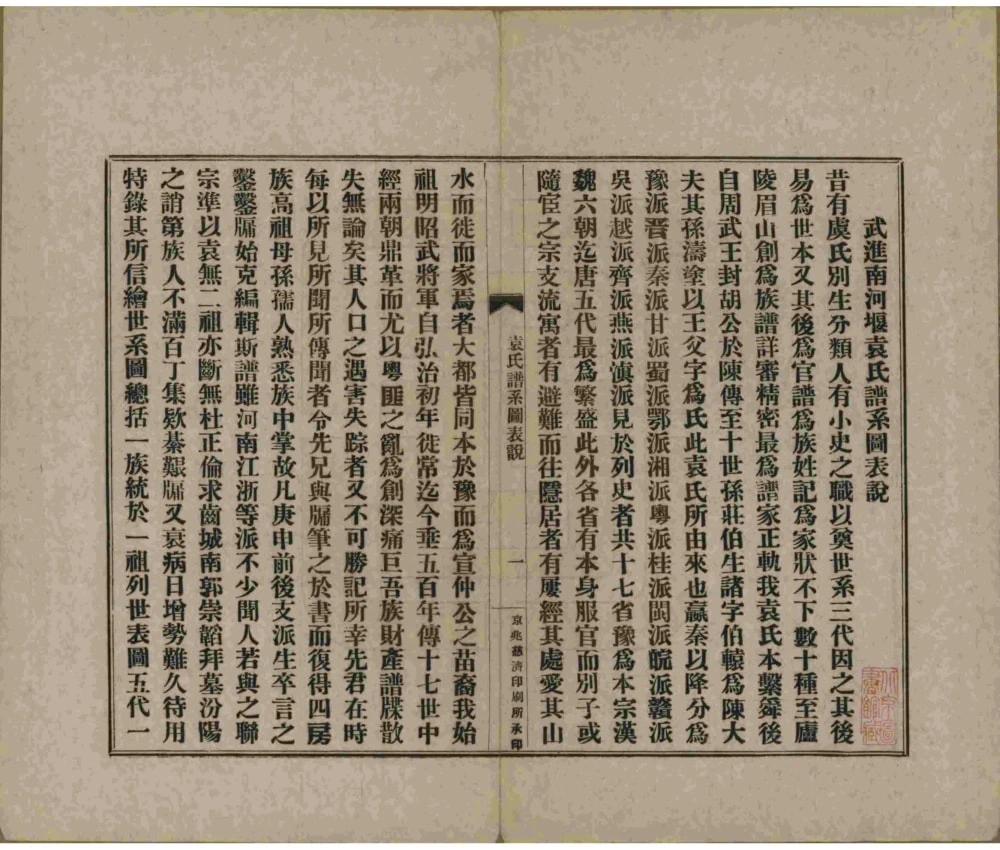 武進南河堰袁氏譜系圖表說
昔有虞氏別生分類人有小史之職以奠世系三代因之其後
易爲世本又其後爲官譜爲族姓記爲家狀不下數十種至廬
陵眉山創爲族譜詳審精密最爲譜家正軌我袁氏本繫舜後
自周武王封胡公於陳傳至十世孫莊伯生諸字伯轅爲陳大
夫其孫濤塗以王父字爲氏此袁氏所由來也嬴秦以降分爲
豫派晋派秦派甘派蜀派鄂派湘派粵派桂派閩派皖派贛派
吳派越派齊派燕派滇派見於列史者共十七省豫爲本宗漢
魏六朝迄唐五代最爲繁盛此外各省有本身服官而別子或
隨宦之宗支流寓者有避難而往隱居者有屢經其處愛其山
水而徙而家焉者大都皆同本於豫而爲宣仲公之苗裔我始
祖明昭武將軍自弘治初年徙常迄今垂五百年傳十七世中
經兩朝鼎革而尤以粵匪之亂爲創深痛巨吾族財產譜牒散
失無論矣其人口之遇害失踪者又不可勝記所幸先君在時
每以所見所聞所傳聞者令先兄與牖筆之於書而復得四房
族高祖母孫孺人熟悉族中掌故凡庚申前後支派生卒言之
鑿鑿牖始克編輯斯譜雖河南江浙等派不少聞人若與之聯
宗準以袁無二祖亦斷無杜正倫求齒城南郭崇韜拜墓汾陽
之誚第族人不滿百丁集欵綦艱牖又衰病日增勢難久待用
特錄其所信繪世系圖總括一族統於一祖列世表圖五代一
袁氏譜系圖表說
一
京兆慈濟印刷所承印